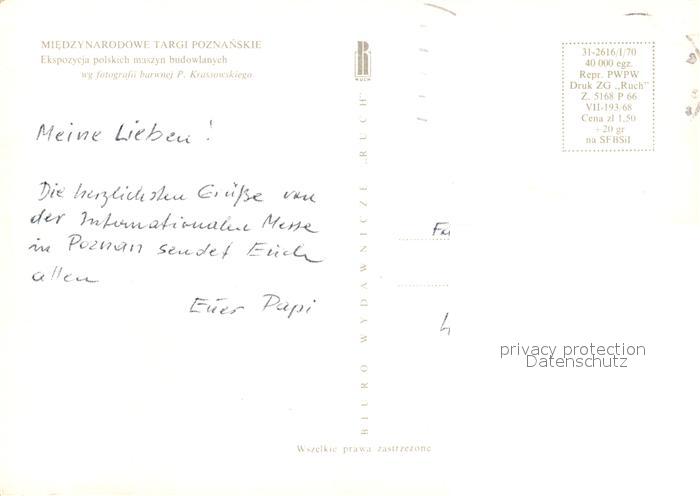 MIĘDZYNARODOWE TARGI POZNAŃSKIE
Ekspozycja polskich maszyn budowlanych
wg fotografii barwnej P. Krassowskiego
Meine Lieben!
Die herzlichsten Grüße von
der Internationalen Messe
in Poznan sendet Euch
allen
Euer Papi
RUCH
BIURO WYDAWNICZE „RUCH"
31-2616/I/70
40 000 egz.
Repr. PWPW
Druk ZG „Ruch"
Z. 5168 P 66
VII-193/68
Cena zł 1,50
+20 gr
na SFBSiI
Fa
privacy protection
Datenschutz
Wszelkie prawa zastrzeżone